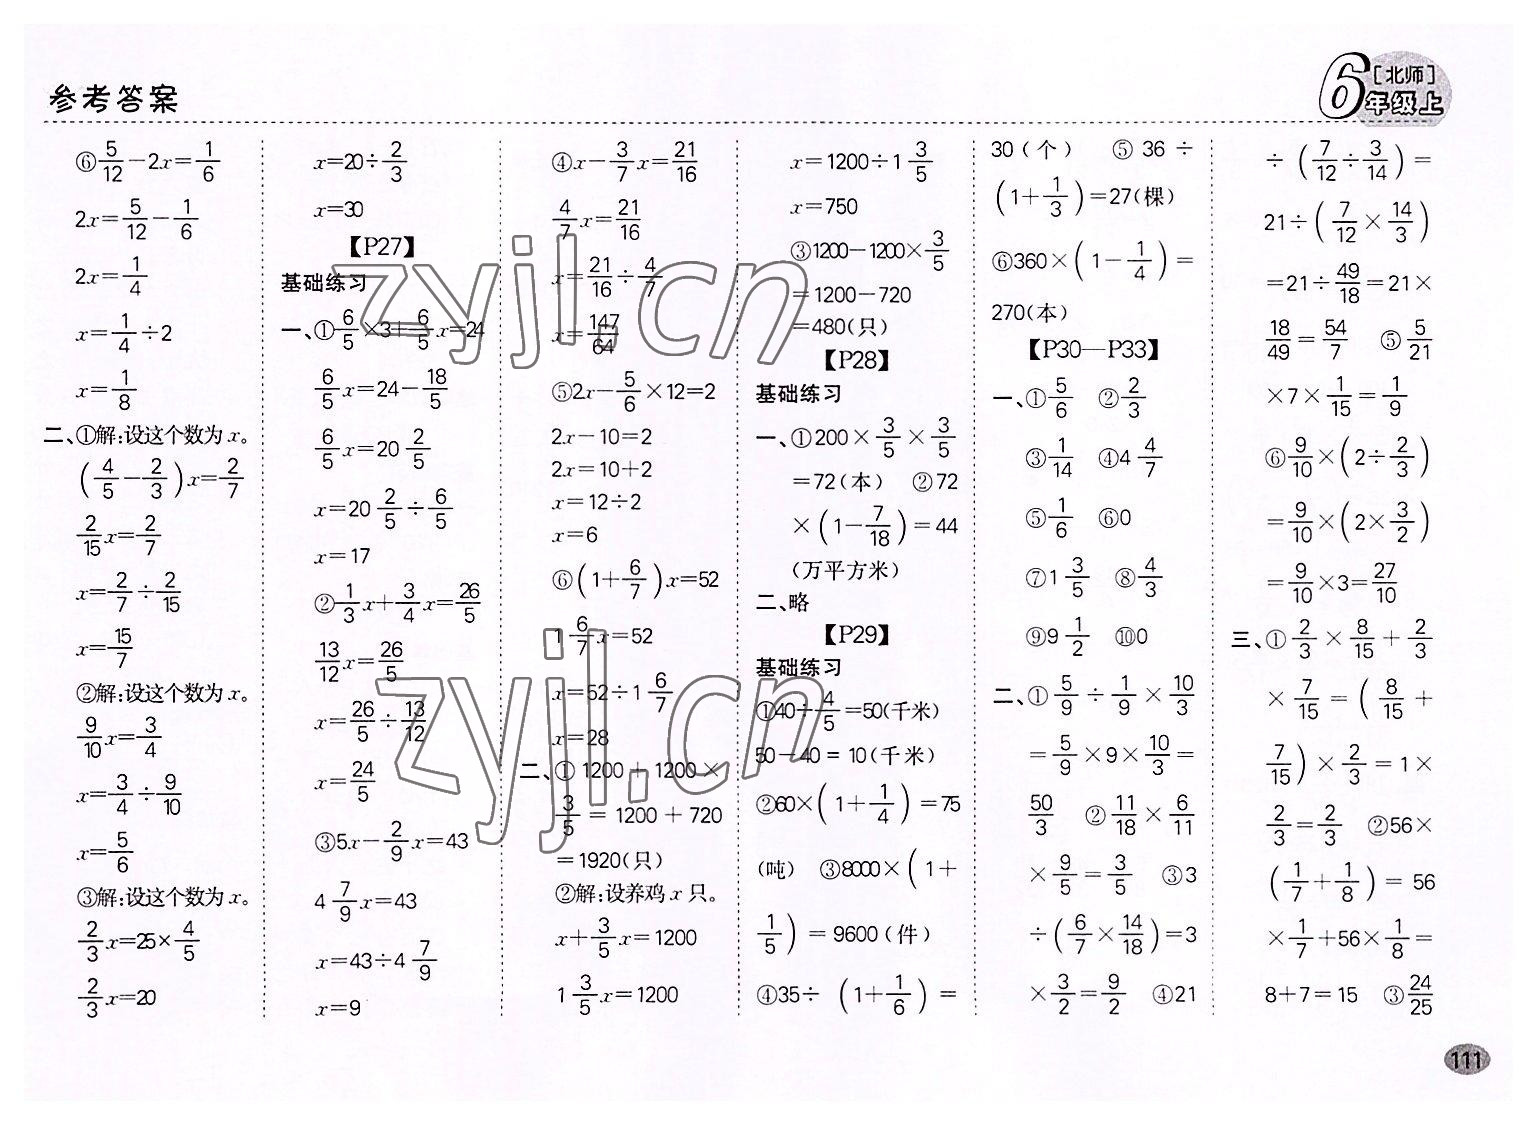 参考答案
6年级上
[北师]
⑥5/12-2x=1/6
2x=5/12-1/6
2x=1/4
x=1/4÷2
x=1/8
二、①解:设这个数为x。
(4/5-2/3)x=2/7
2/15x=2/7
x=2/7÷2/15
x=15/7
②解:设这个数为x。
9/10x=3/4
x=3/4÷9/10
x=5/6
③解:设这个数为x。
2/3x=25×4/5
2/3x=20
x=20÷2/3
x=30
【P27】
基础练习
一、①6/5×3+6/5x=24
6/5x=24-18/5
6/5x=20 2/5
x=20 2/5÷6/5
x=17
②1/3x+3/4x=26/5
13/12x=26/5
x=26/5÷13/12
x=24/5
③5x-2/9x=43
4 7/9x=43
x=43÷4 7/9
x=9
④x-3/7x=21/16
4/7x=21/16
x=21/16÷4/7
x=147/64
⑤2x-5/6×12=2
2x-10=2
2x=10+2
x=12÷2
x=6
⑥(1+6/7)x=52
1 6/7x=52
x=52÷1 6/7
x=28
二、①1200+1200×
3/5=1200+720
=1920(只)
②解:设养鸡x只。
x+3/5x=1200
1 3/5x=1200
x=1200÷1 3/5
x=750
③1200-1200×3/5
=1200-720
=480(只)
【P28】
基础练习
一、①200×3/5×3/5
=72(本) ②72
×(1-7/18)=44
(万平方米)
二、略
【P29】
基础练习
①40÷4/5=50(千米)
50-40=10(千米)
②60×(1+1/4)=75
(吨) ③8000×(1+
1/5)=9600(件)
④35÷(1+1/6)=
30(个) ⑤36÷
(1+1/3)=27(棵)
⑥360×(1-1/4)=
270(本)
【P30—P33】
一、①5/6 ②2/3
③1/14 ④4 4/7
⑤1/6 ⑥0
⑦1 3/5 ⑧4/3
⑨9 1/2 ⑩0
二、①5/9÷1/9×10/3
=5/9×9×10/3=
50/3 ②11/18×6/11
×9/5=3/5 ③3
÷(6/7×14/18)=3
×3/2=9/2 ④21
÷(7/12÷3/14)=
21÷(7/12×14/3)
=21÷49/18=21×
18/49=54/7 ⑤5/21
×7×1/15=1/9
⑥9/10×(2÷2/3)
=9/10×(2×3/2)
=9/10×3=27/10
三、①2/3×8/15+2/3
×7/15=(8/15+
7/15)×2/3=1×
2/3=2/3 ②56×
(1/7+1/8)=56
×1/7+56×1/8=
8+7=15 ③24/25
111
zyjl.cn
zyjl.cn